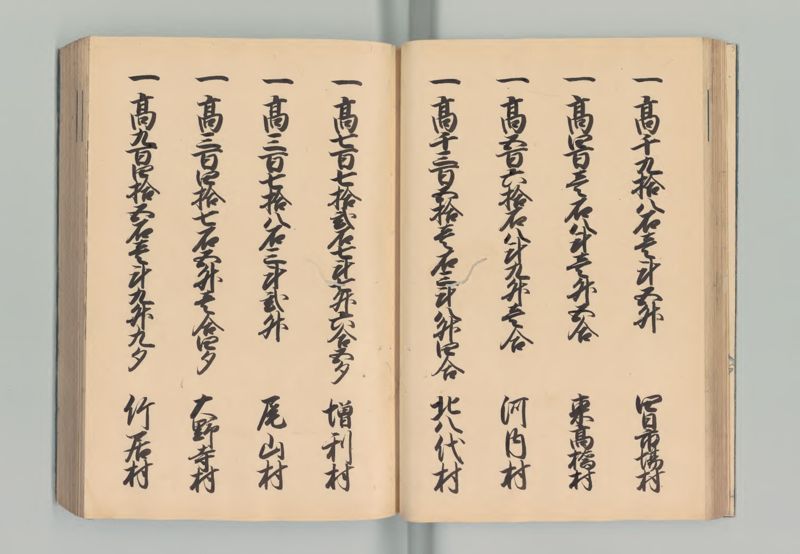 一 高千九拾八石壱斗五升 四日市場村
一 高四百壱石八斗壱升五合 東高橋村
一 高五百六拾石八斗九升壱合 河内村
一 高千三百五拾壱石三斗八升四合 北八代村
一 高七百七拾弐石七斗壱升六合五夕 増利村
一 高三百七拾八石三斗弐升 尾山村
一 高三百四拾七石五升壱合四夕 大野寺村
一 高九百四拾五石壱斗九升九夕 竹居村